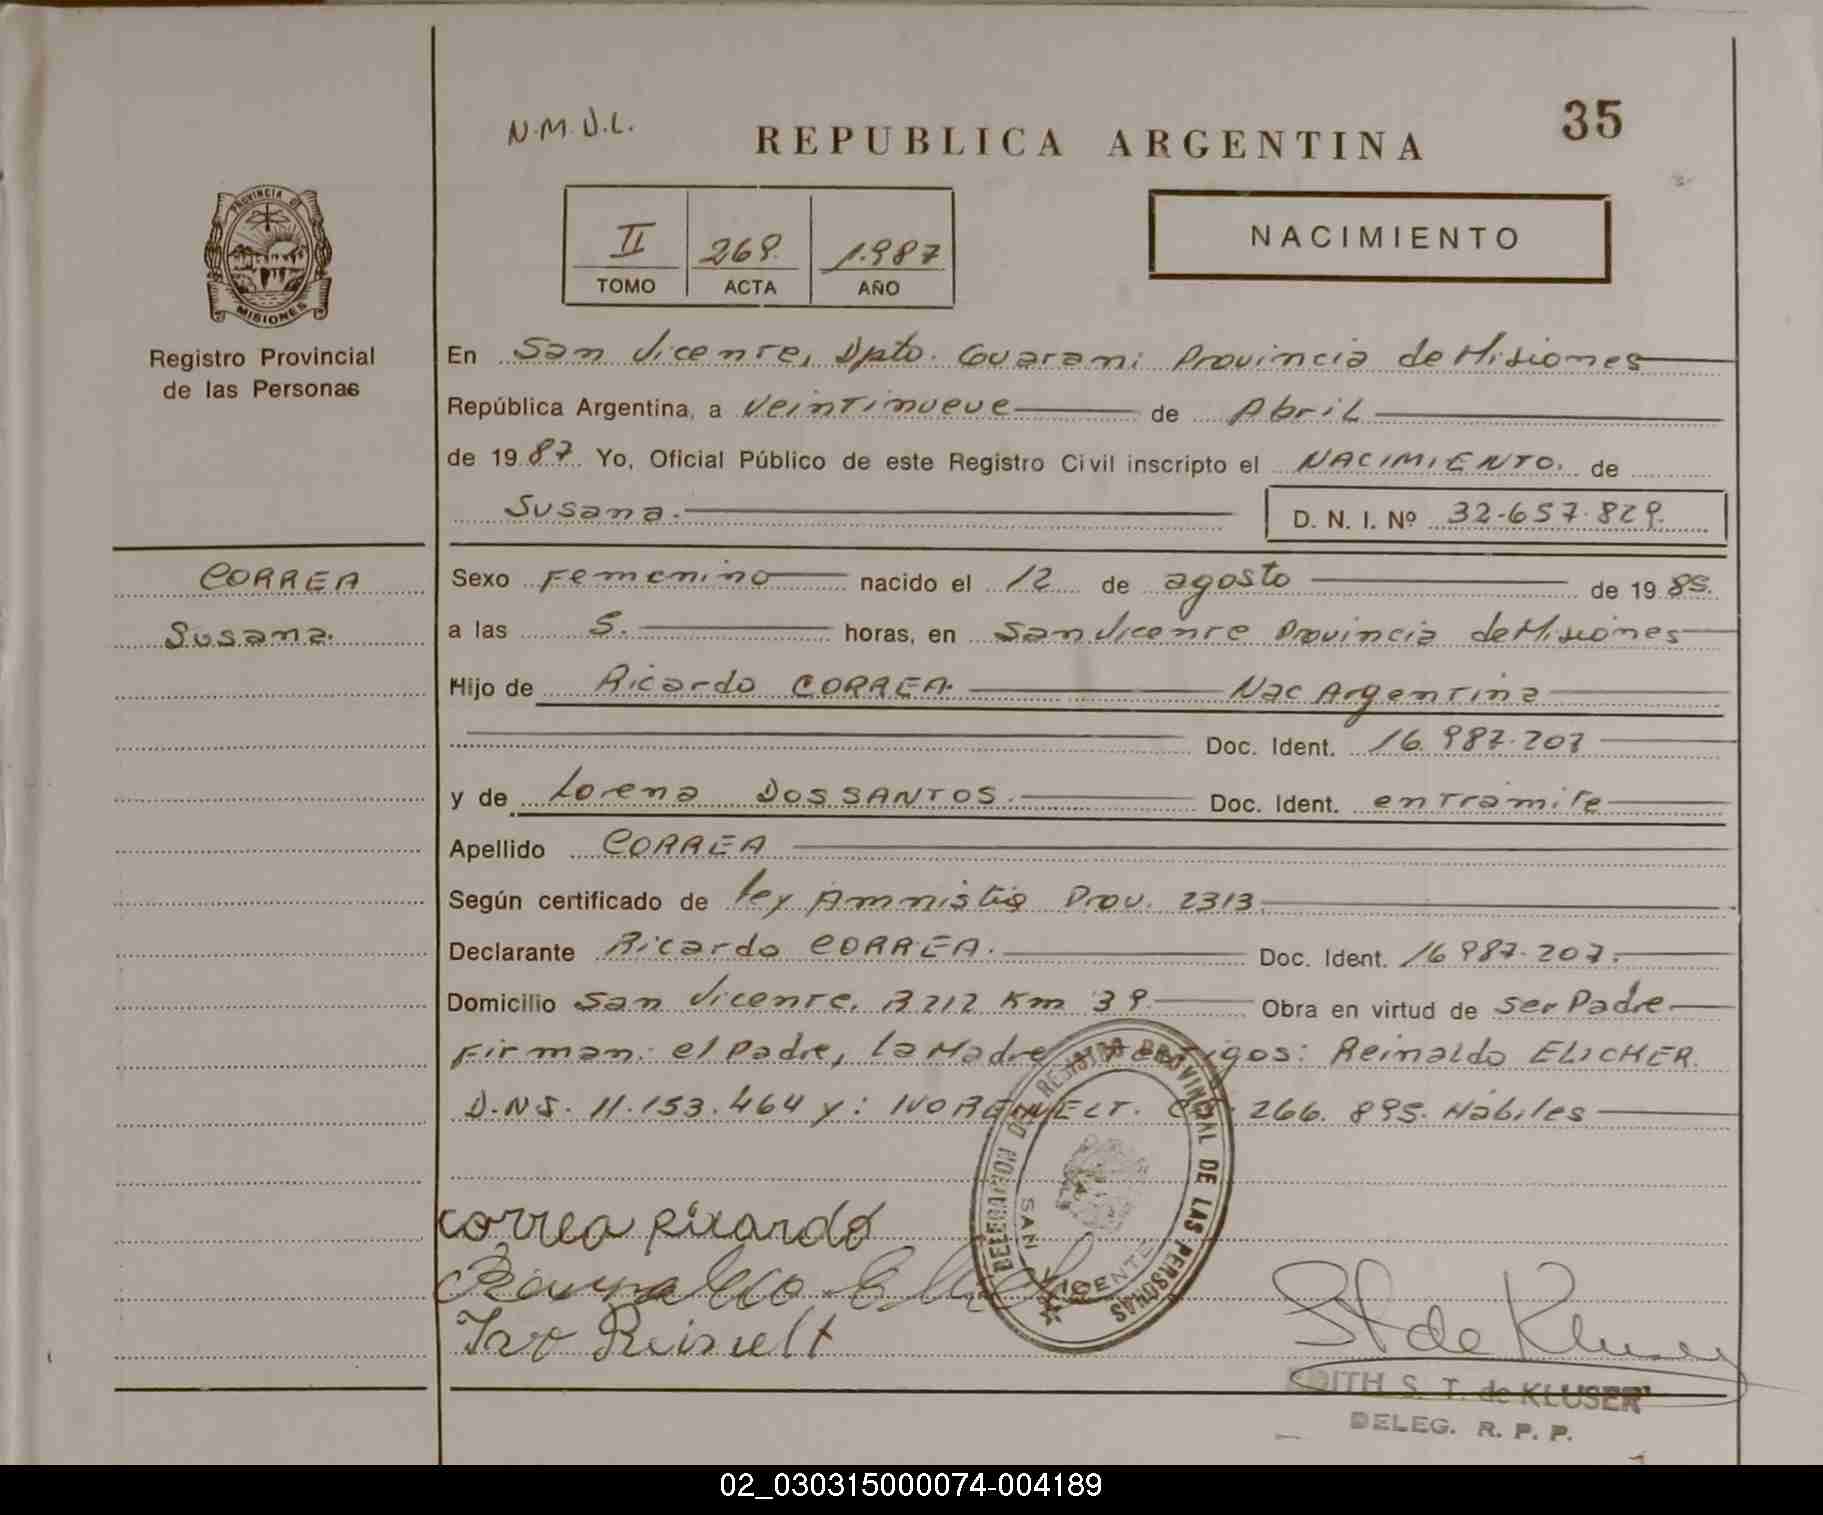 N.M.J.L.
REPUBLICA ARGENTINA
35
PROVINCIA DE
MISIONES
Registro Provincial
de las Personas
II 269. 1.987
TOMO ACTA AÑO
NACIMIENTO
En San Vicente, Dpto. Guarani Provincia de Misiones
República Argentina, a Veintinueve de Abril
de 1987. Yo, Oficial Público de este Registro Civil inscripto el NACIMIENTO. de
Susana. D. N. I. Nº 32-657-829.
CORREA
Susana.
Sexo Femenino nacido el 12 de agosto de 1985.
a las 5. horas, en San Vicente Provincia de Misiones
Hijo de Ricardo CORREA. Nac Argentina
Doc. Ident. 16.987.207
y de Lorena DOSSANTOS. Doc. Ident. en Tramite
Apellido CORREA
Según certificado de ley Amnistia Prov. 2313.
Declarante Ricardo CORREA. Doc. Ident. 16 987.207.
Domicilio San Vicente, R 212 Km 39. Obra en virtud de ser Padre
Firman: el Padre, la Madre y testigos: Reinaldo ELICKER.
D.N.I. 11.153.464 y: IVO 266.895. Hábiles
DELEGACION DEL REGISTRO PROVINCIAL DE LAS PERSONAS
SAN VICENTE
correa Ricardo
Ivo
St de Kluser
EDITH S. T. de KLUSER
DELEG. R. P. P.
02_030315000074-004189